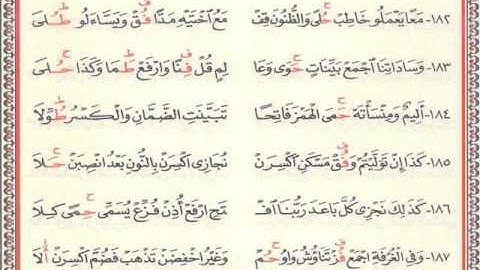 ١٨٢- مَعًا يَعْمَلُو خَاطِبْ حُلًى وَالظُّنُونَ قِفْ مَعُ اخْتَيْهِ مَدًّا فُقْ وَيَسَّاءَلُو طُلَى
١٨٣- وَسَادَاتِنَا اجْمَعْ بَيِّنَاتٍ حَوَى وَعَا لِمِ قُلْ فِنًا وَارْفَعْ طَمَا وَكَذَا حُلَى
١٨٤- أَلِيمٌ وَمِنْسَأْتَهْ حَمَى الْهَمْزَ فَاتِحًا تَبَيَّنَتِ الضَّمَّانِ وَالْكَسْرُ طُوِّلَا
١٨٥- كَذَا إِنْ تَوَلَّيْتُمْ وَفُقْ مَسْكَنِ اكْسِرَنْ نُجَازِي اكْسِرَنْ بِالنُّونِ بَعْدُ انْصِبَنْ حَلَا
١٨٦- كَذَلِكَ نَجْزِي كُلَّ بَاعَدَ رَبُّنَا افْـ تَحِ ارْفَعْ أُذِنَ فُزِّعْ يُسَمِّى حِمًى كِلَا
١٨٧- وَفِي الْغُرْفَةِ اجْمَعْ فُزْ تَنَاوُشُ وَاوُ حُمْ وَغَيْرُ اخْفِضَنْ تَذْهَبْ فَضُمَّ اكْسِرَنْ أَلَا